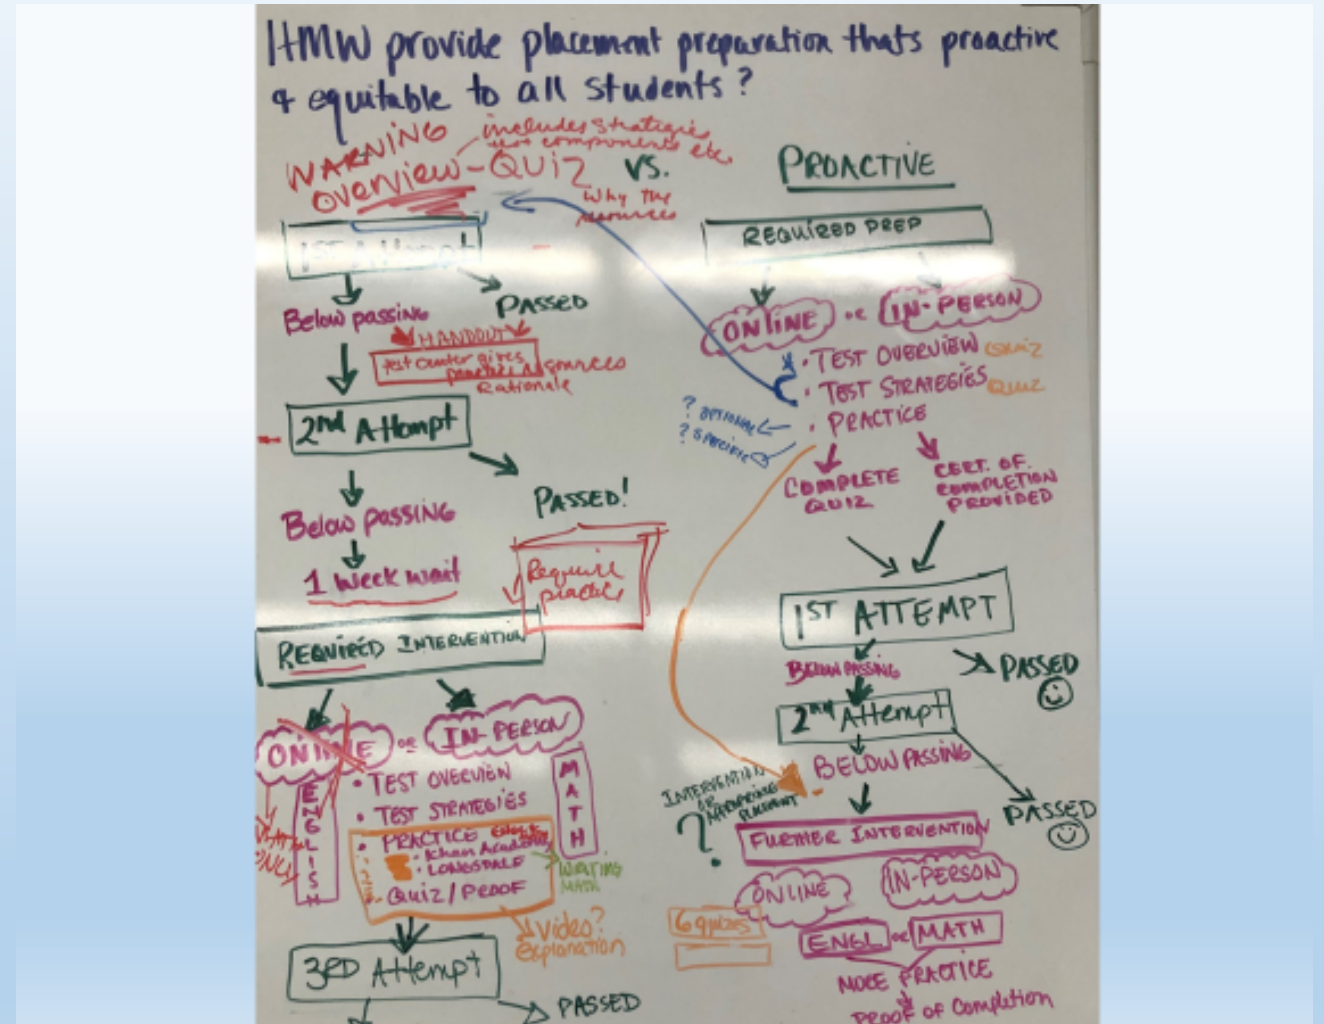 HMW provide placement preparation thats proactive
& equitable to all students?
WARNING
includes strategies
test components etc.
overview - QUIZ
why the
resources
VS.
1ST Attempt
Below passing
PASSED
HANDOUT
test center gives
practice resources
Rationale
2nd Attempt
Below passing
PASSED!
1 Week wait
Require
practice
REQUIRED INTERVENTION
ONLINE or IN-PERSON
ENGLISH
MATH
• TEST OVERVIEW
• TEST STRATEGIES
• PRACTICE
• Khan Academy
• LONGSDALE
• Quiz/PROOF
ONLY
WRITING
MATH
video?
explanation
3RD Attempt
PASSED
PROACTIVE
REQUIRED PREP
ONLINE or IN-PERSON
• TEST OVERVIEW Quiz
• TEST STRATEGIES Quiz
• PRACTICE
? OPTIONAL
? SPECIFIC
COMPLETE
QUIZ
CERT. OF
COMPLETION
PROVIDED
1ST ATTEMPT
BELOW PASSING
PASSED
2nd Attempt
BELOW PASSING
PASSED
INTERVENTION
OR
PLACEMENT
?
FURTHER INTERVENTION
ONLINE
IN-PERSON
6 quizzes
ENGL or MATH
MORE PRACTICE
PROOF of Completion